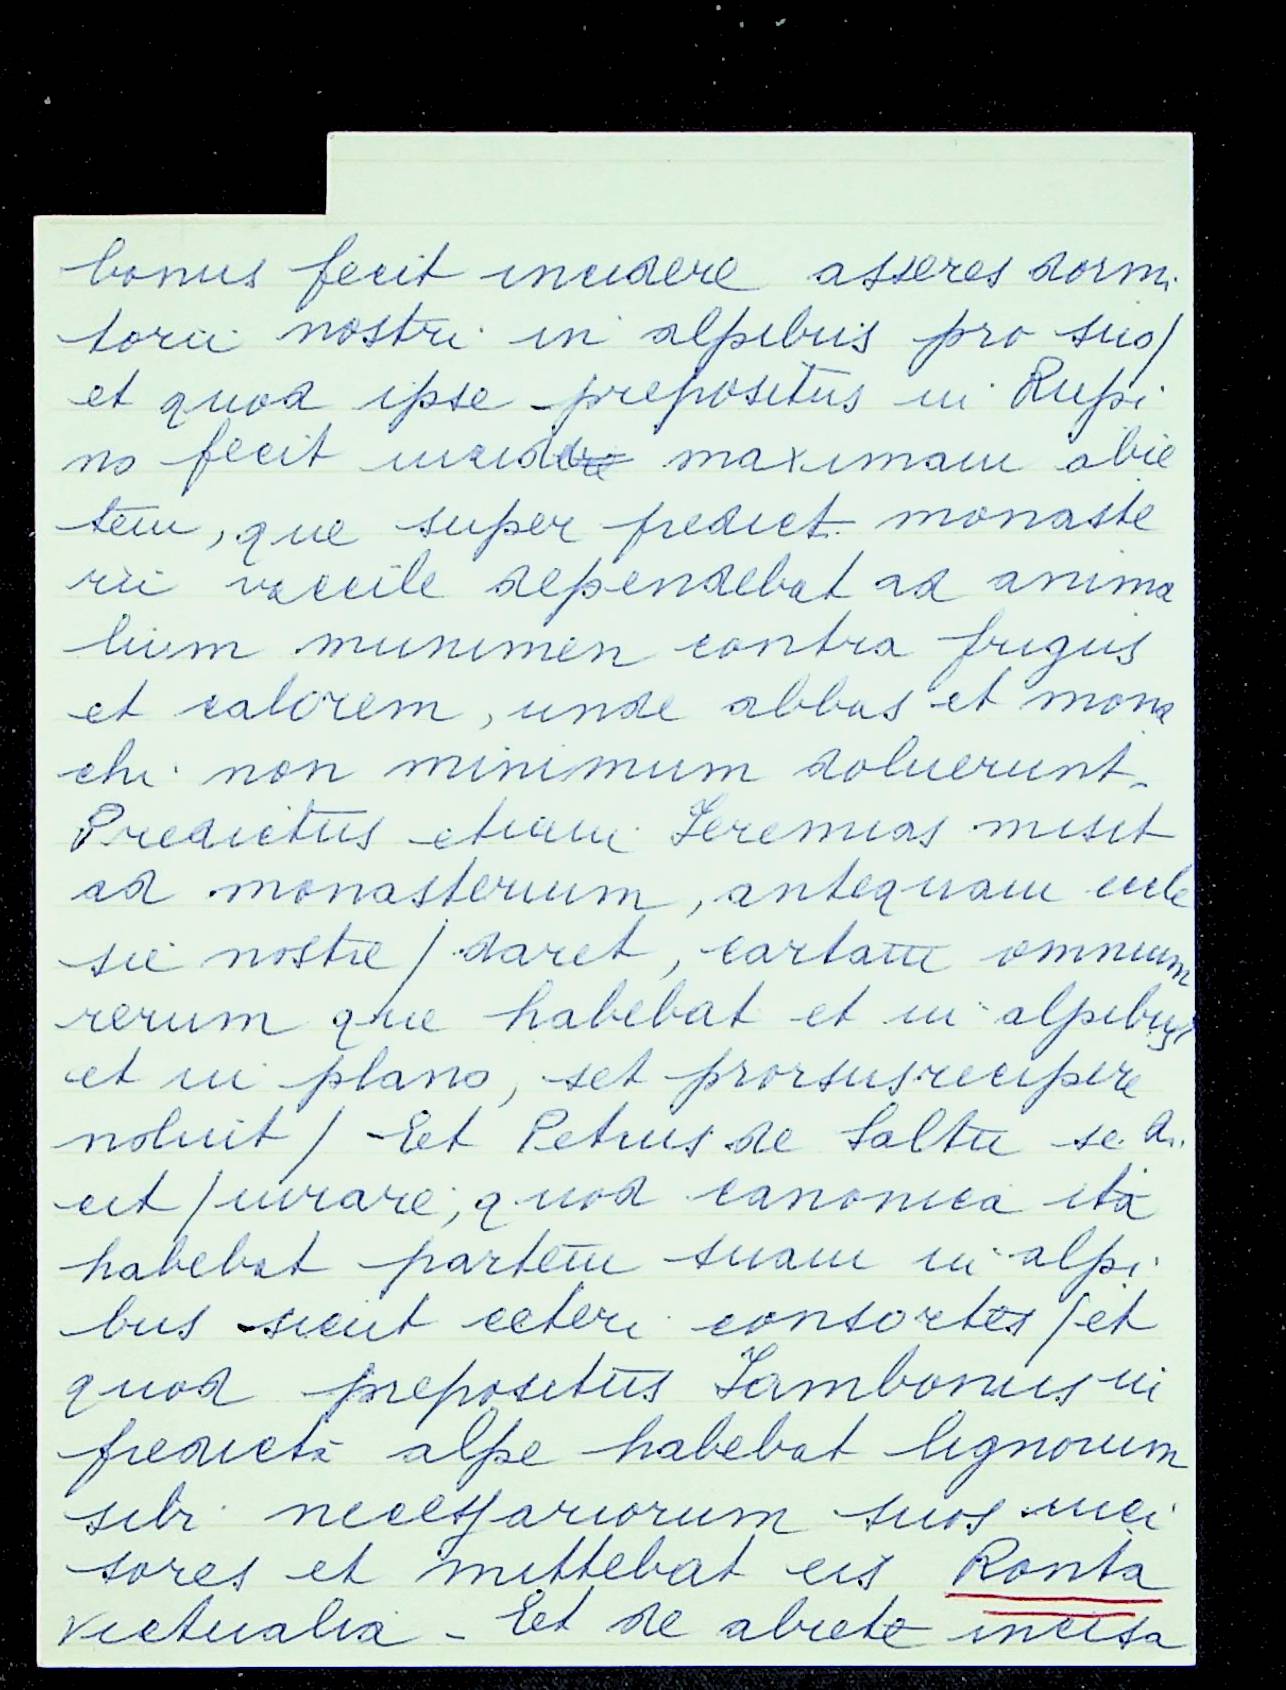 bonus fecit incidere asseres dormi
torii nostri in alpibus pro suo/
et quod ipse prepositus in Rupi
no fecit incidere maximam abie
tem, que super predict. monaste
rii vaccile dependebat ad anima
lium munimen contra frigus
et calorem, unde abbas et mona
chi non minimum doluerunt.
Predictus etiam Jeremias misit
ad monasterium, antequam eccle
sie nostre / daret, cartam omnium
rerum que habebat et in alpibus
et in plano, set prorsus recipere
noluit / Et Petrus de Saltu se di
cit / iurare, quod canonica ita
habebat partem suam in alpi
bus sicut ceteri consortes / et
quod prepositus Jambonus in
predicta alpe habebat lignorum
sibi necessariorum suos inci
sores et mittebat eis Ronta
victualia - Et de abiete incisa